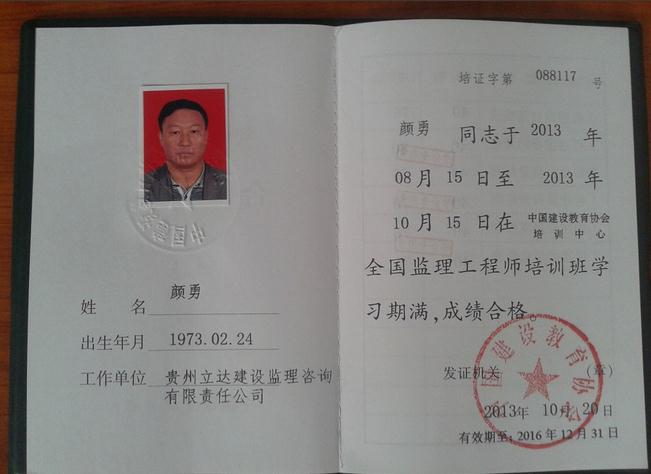 姓 名 颜勇
出生年月 1973.02.24
工作单位 贵州立达建设监理咨询
有限责任公司
培证字第 088117 号
颜勇 同志于 2013 年
08 月 15 日至 2013 年
10 月 15 日在 中国建设教育协会
培训中心
全国监理工程师培训班学
习期满,成绩合格。
中国建设教育协会
发证机关 (章)
2013年 10月 20日
有效期至:2016年12月31日